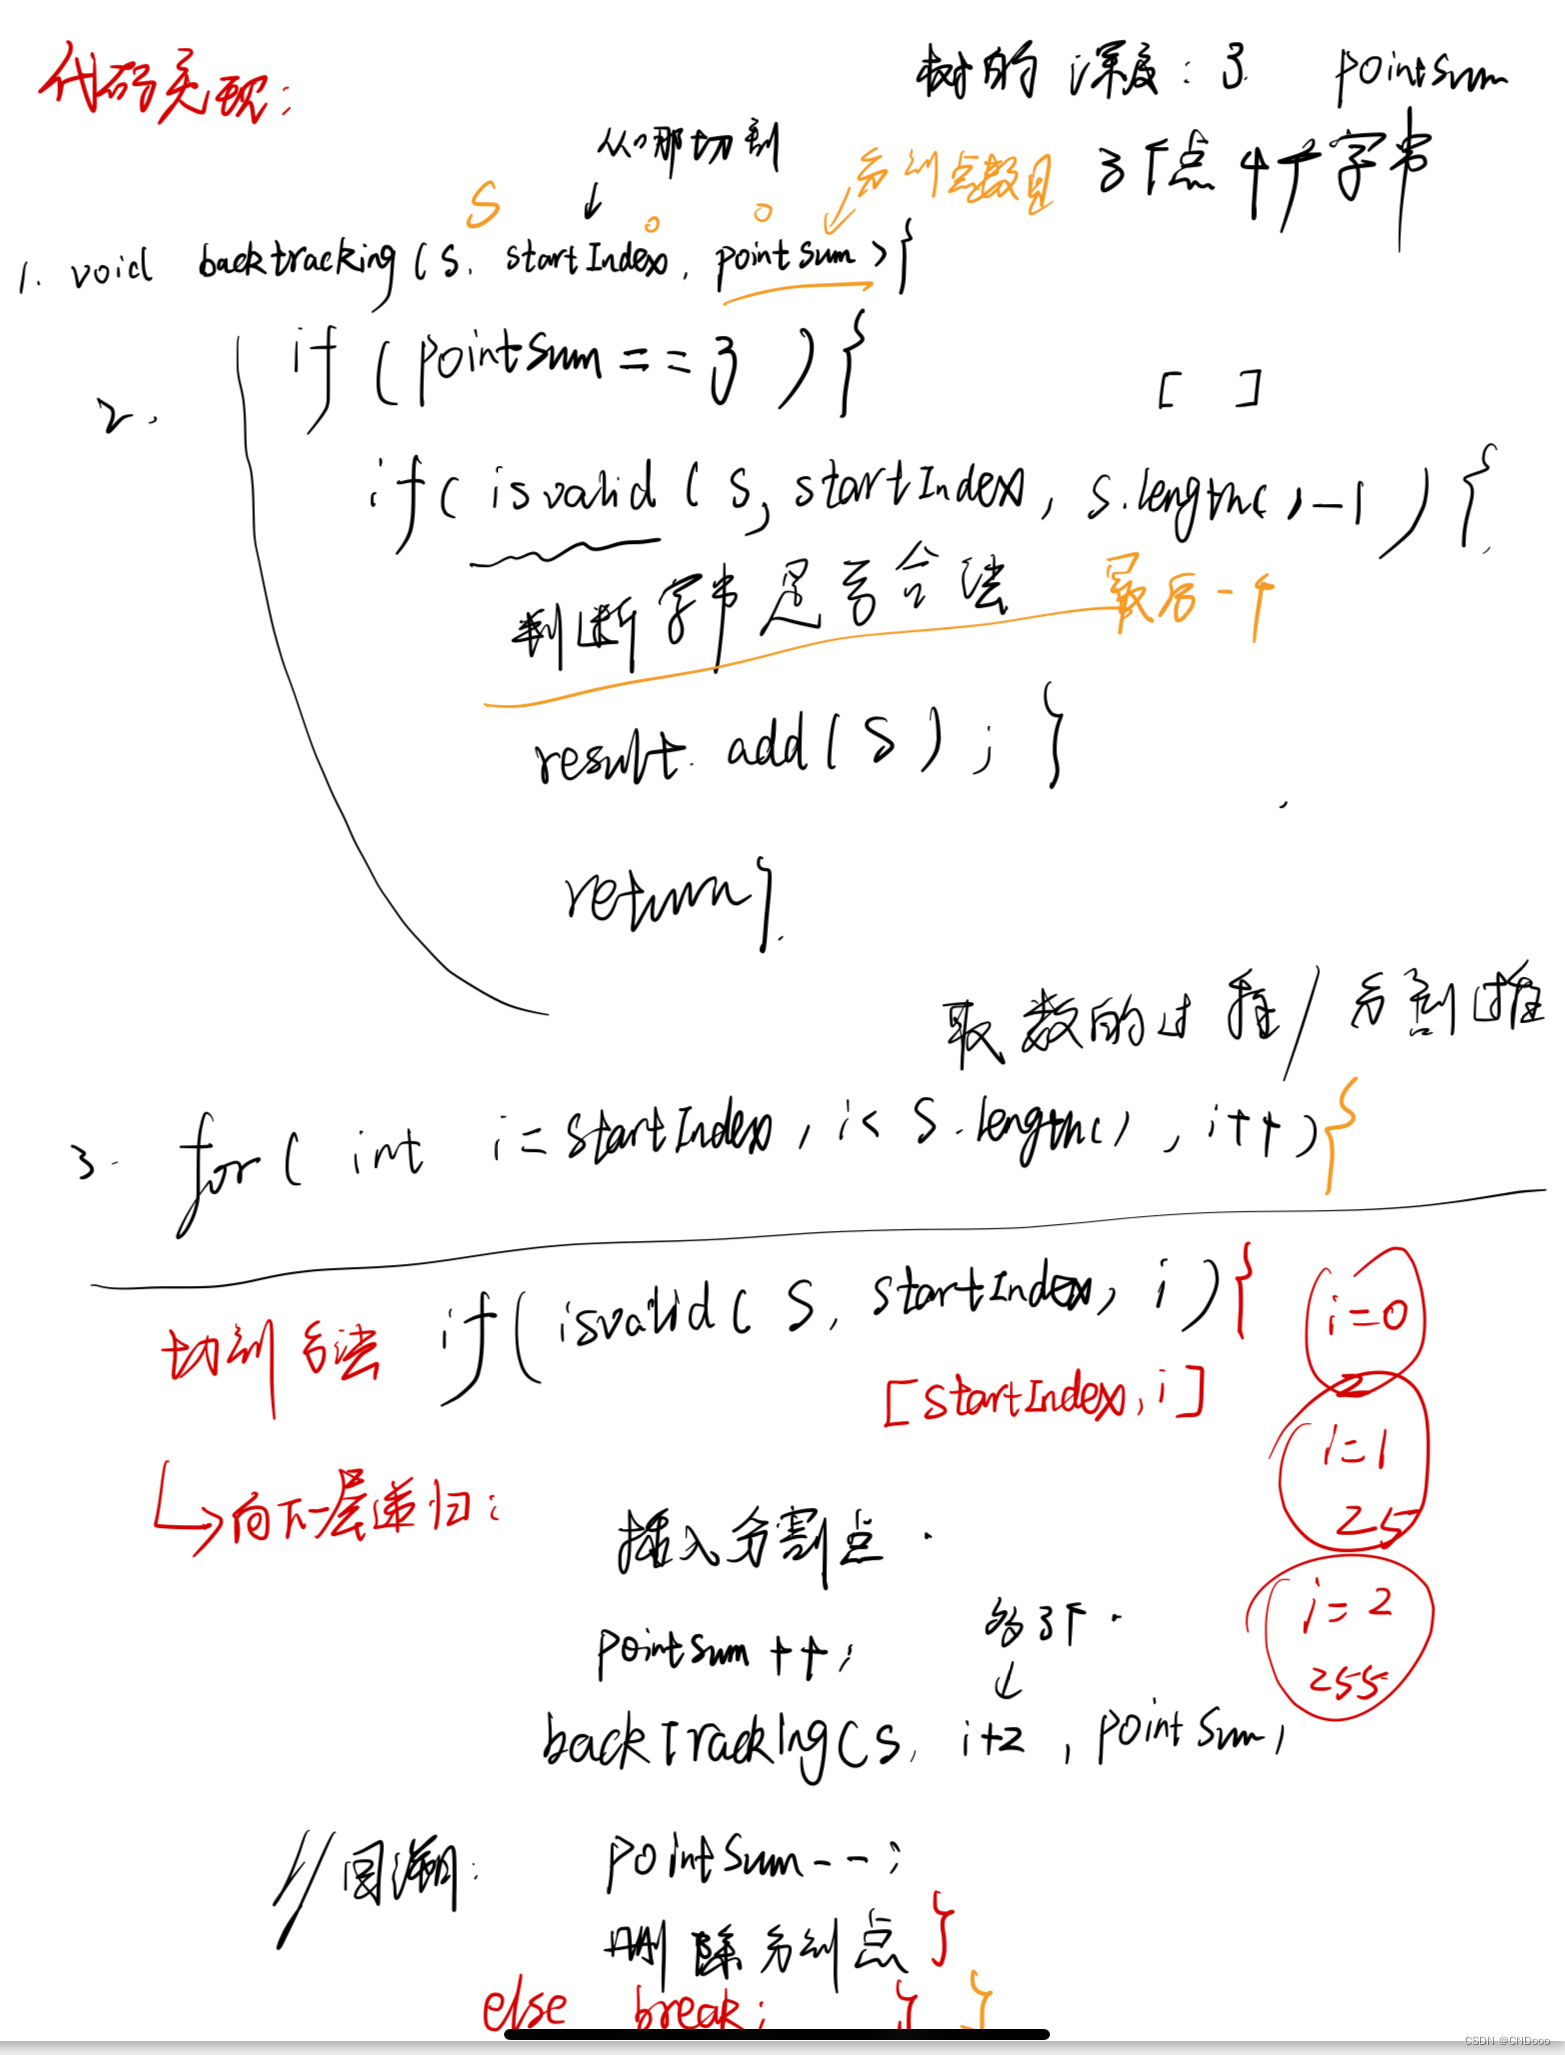 代码实现:
树的深度: 3 pointSum
从哪切割
分割点数目
3个点 4个字串
S 0 0
1. void backtracking(s, startIndex, pointSum){
2. if (pointSum == 3){
[ ]
if(isvalid(s, startIndex, s.length()-1){
判断字串是否合法
最后一个
result.add(s); }
return}
取数的过程/分割过程
3. for(int i=startIndex, i< s.length(), i++){
切割方法 if(isvalid(s, startIndex, i){
[startIndex, i]
i=0
2
i=1
25
i=2
255
↳向下一层递归:
插入分割点 .
pointSum ++;
多了个 .
backTracking(s, i+2, pointSum)
//回溯: pointSum--;
删除分割点}
else break; } }
CSDN @CNDooo